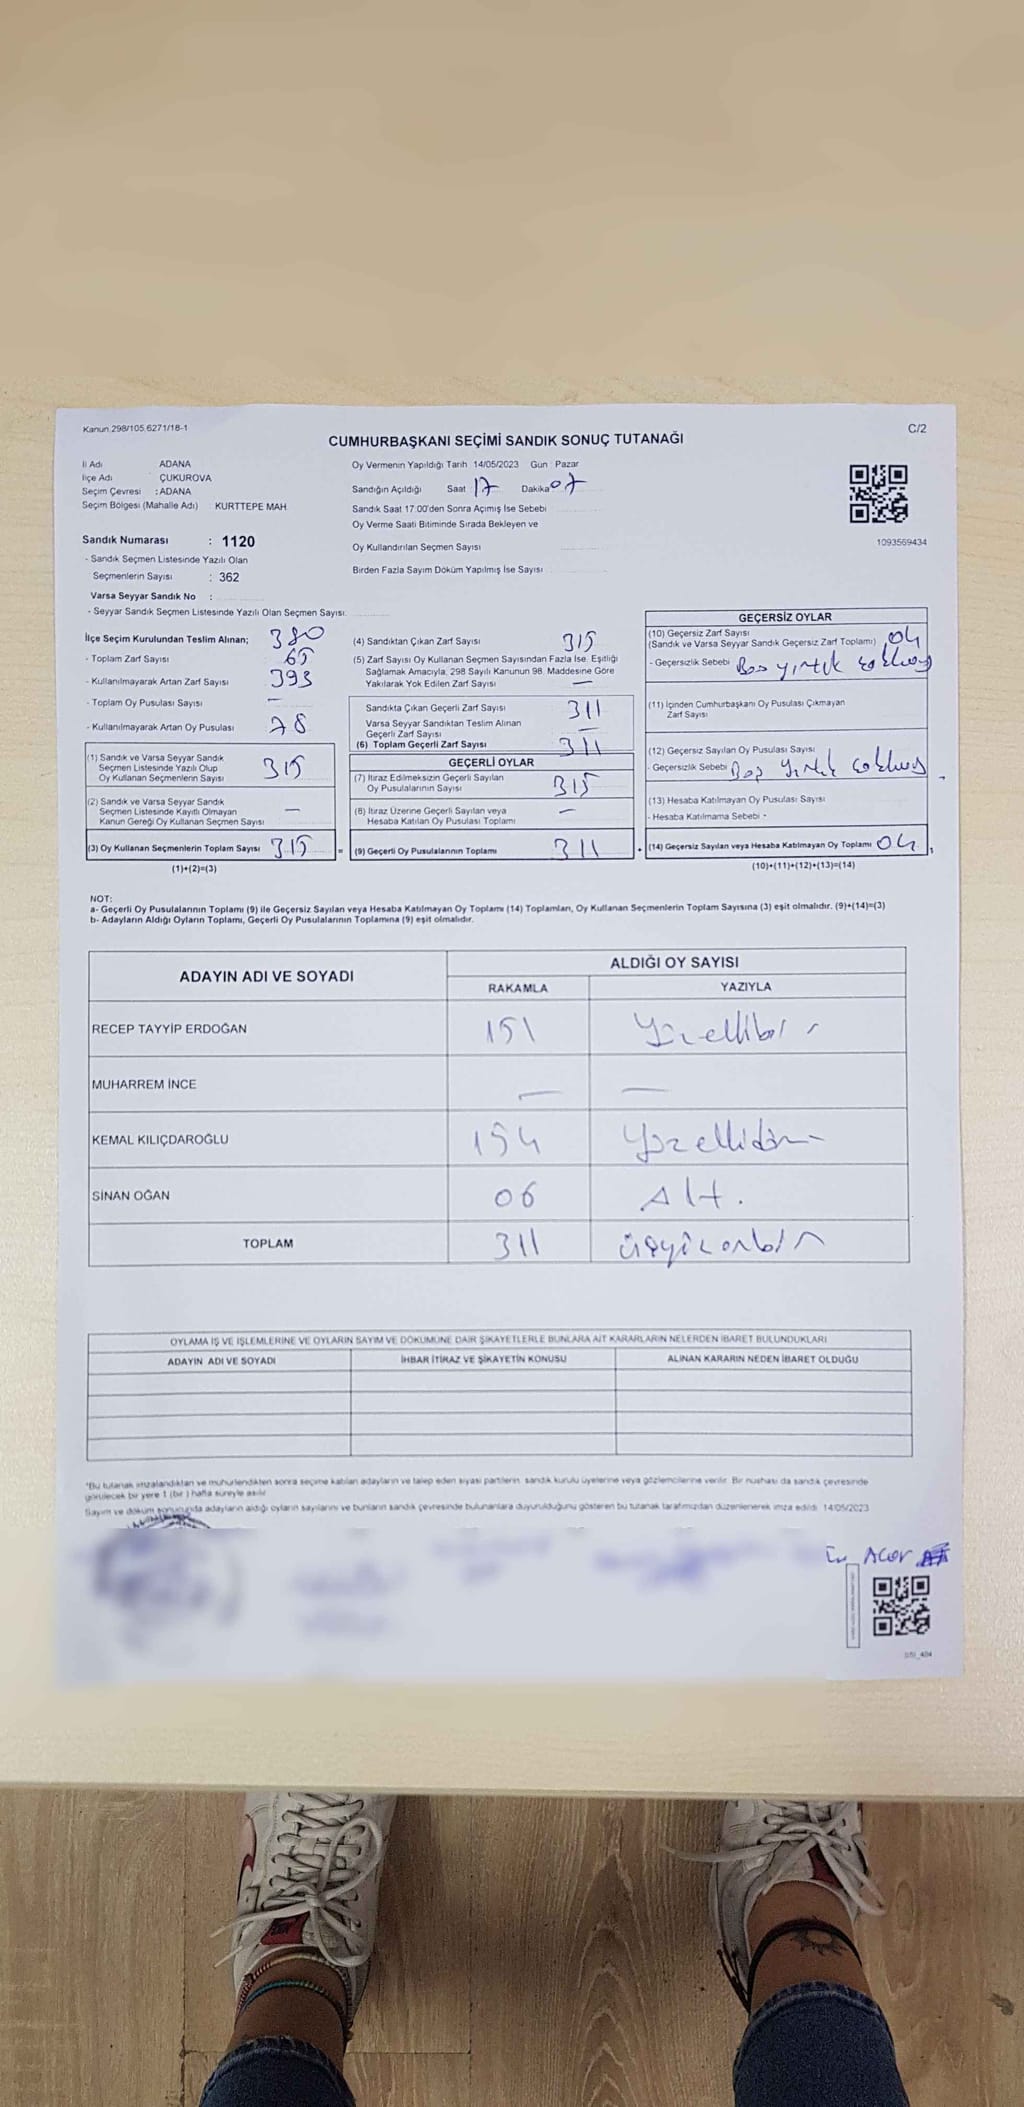 Kanun.298/105.6271/18-1
C/2
CUMHURBAŞKANI SEÇİMİ SANDIK SONUÇ TUTANAĞI
İl Adı ADANA
İlçe Adı ÇUKUROVA
Seçim Çevresi : ADANA
Seçim Bölgesi (Mahalle Adı) KURTTEPE MAH.
Sandık Numarası : 1120
- Sandık Seçmen Listesinde Yazılı Olan
Seçmenlerin Sayısı : 362
Varsa Seyyar Sandık No :
- Seyyar Sandık Seçmen Listesinde Yazılı Olan Seçmen Sayısı:
Oy Vermenin Yapıldığı Tarih 14/05/2023 Gün : Pazar
Sandığın Açıldığı Saat 17 Dakika 07
Sandık Saat 17:00'den Sonra Açımış İse Sebebi
Oy Verme Saati Bitiminde Sırada Bekleyen ve
Oy Kullandırılan Seçmen Sayısı
Birden Fazla Sayım Döküm Yapılmış İse Sayısı
1093569434
İlçe Seçim Kurulundan Teslim Alınan; 380
- Toplam Zarf Sayısı 65
- Kullanılmayarak Artan Zarf Sayısı 393
- Toplam Oy Pusulası Sayısı —
- Kullanılmayarak Artan Oy Pusulası 78
(1) Sandık ve Varsa Seyyar Sandık
Seçmen Listesinde Yazılı Olup
Oy Kullanan Seçmenlerin Sayısı 315
(2) Sandık ve Varsa Seyyar Sandık
Seçmen Listesinde Kayıtlı Olmayan
Kanun Gereği Oy Kullanan Seçmen Sayısı —
(3) Oy Kullanan Seçmenlerin Toplam Sayısı 315 =
(1)+(2)=(3)
(4) Sandıktan Çıkan Zarf Sayısı 315
(5) Zarf Sayısı Oy Kullanan Seçmen Sayısından Fazla İse, Eşitliği
Sağlamak Amacıyla, 298 Sayılı Kanunun 98. Maddesine Göre
Yakılarak Yok Edilen Zarf Sayısı —
Sandıkta Çıkan Geçerli Zarf Sayısı 311
Varsa Seyyar Sandıktan Teslim Alınan
Geçerli Zarf Sayısı —
(6) Toplam Geçerli Zarf Sayısı 311
GEÇERLİ OYLAR
(7) İtiraz Edilmeksizin Geçerli Sayılan
Oy Pusulalarının Sayısı 315
(8) İtiraz Üzerine Geçerli Sayılan veya
Hesaba Katılan Oy Pusulası Toplamı —
(9) Geçerli Oy Pusulalarının Toplamı 311 +
GEÇERSİZ OYLAR
(10) Geçersiz Zarf Sayısı
(Sandık ve Varsa Seyyar Sandık Geçersiz Zarf Toplamı) 04
- Geçersizlik Sebebi Boş yırtık
(11) İçinden Cumhurbaşkanı Oy Pusulası Çıkmayan
Zarf Sayısı
(12) Geçersiz Sayılan Oy Pusulası Sayısı
- Geçersizlik Sebebi Boş Yırtık
(13) Hesaba Katılmayan Oy Pusulası Sayısı
- Hesaba Katılmama Sebebi -
(14) Geçersiz Sayılan veya Hesaba Katılmayan Oy Toplamı 04
(10)+(11)+(12)+(13)=(14)
NOT:
a- Geçerli Oy Pusulalarının Toplamı (9) ile Geçersiz Sayılan veya Hesaba Katılmayan Oy Toplamı (14) Toplamları, Oy Kullanan Seçmenlerin Toplam Sayısına (3) eşit olmalıdır. (9)+(14)=(3)
b- Adayların Aldığı Oyların Toplamı, Geçerli Oy Pusulalarının Toplamına (9) eşit olmalıdır.
ADAYIN ADI VE SOYADI ALDIĞI OY SAYISI
RAKAMLA YAZIYLA
RECEP TAYYİP ERDOĞAN 151 Yüzellibir
MUHARREM İNCE — —
KEMAL KILIÇDAROĞLU 154 Yüzellidört
SİNAN OĞAN 06 Altı
TOPLAM 311 üçyüzonbir
OYLAMA İŞ VE İŞLEMLERİNE VE OYLARIN SAYIM VE DÖKÜMÜNE DAİR ŞİKAYETLERLE BUNLARA AİT KARARLARIN NELERDEN İBARET BULUNDUKLARI
ADAYIN ADI VE SOYADI İHBAR İTİRAZ VE ŞİKAYETİN KONUSU ALINAN KARARIN NEDEN İBARET OLDUĞU
*Bu tutanak imzalandıktan ve mühürlendikten sonra seçime katılan adayların ve talep eden siyasi partilerin, sandık kurulu üyelerine veya gözlemcilerine verilir. Bir nushası da sandık çevresinde
görülecek bir yere 1 (bir ) hafta süreyle asılır.
Sayım ve döküm sonucunda adayların aldığı oyların sayılarını ve bunların sandık çevresinde bulunanlara duyurulduğunu gösteren bu tutanak tarafımızdan düzenlenerek imza edildi. 14/05/2023
Acer